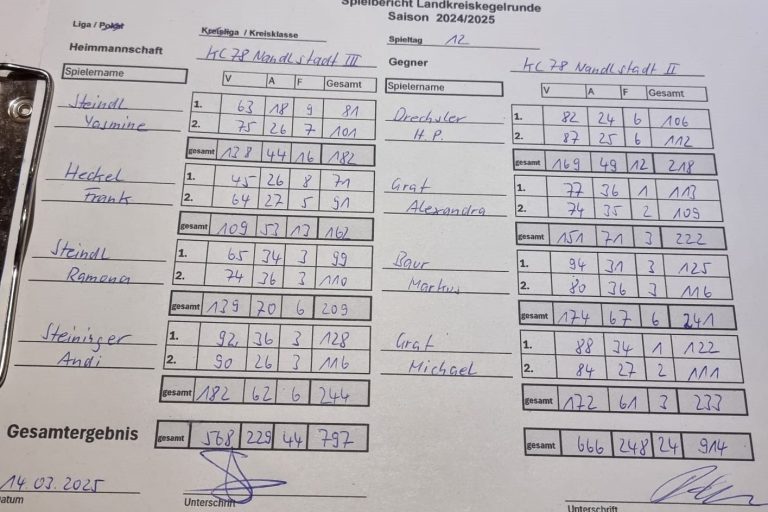 Spielbericht Landkreiskegelrunde
Saison 2024/2025
Liga / Pokal
Kreisliga / Kreisklasse
Spieltag 12
Heimmannschaft KC 78 Nandlstadt III
Gegner KC 78 Nandlstadt II
Spielername V A F Gesamt
Spielername V A F Gesamt
Steindl 1. 63 18 9 81
Drechsler 1. 82 24 6 106
Yasmine 2. 75 26 7 101
H.P. 2. 87 25 6 112
gesamt 138 44 16 182
gesamt 169 49 12 218
Heckel 1. 45 26 8 71
Graf 1. 77 36 1 113
Frank 2. 64 27 5 91
Alexandra 2. 74 35 2 109
gesamt 109 53 13 162
gesamt 151 71 3 222
Steindl 1. 65 34 3 99
Baur 1. 94 31 3 125
Ramona 2. 74 36 3 110
Markus 2. 80 36 3 116
gesamt 139 70 6 209
gesamt 174 67 6 241
Steininger 1. 92 36 3 128
Graf 1. 88 34 1 122
Andi 2. 90 26 3 116
Michael 2. 84 27 2 111
gesamt 182 62 6 244
gesamt 172 61 3 233
Gesamtergebnis gesamt 568 229 44 797
gesamt 666 248 24 914
14.03.2025
atum
Unterschrift
Unterschrift